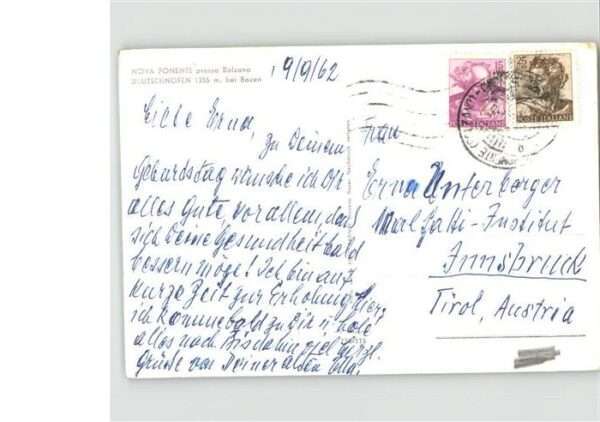 NOVA PONENTE presso Bolzano
DEUTSCHNOFEN 1355 m. bei Bozen
19/9/62
Liebe Erna,
zu Deinem
Geburtstag wünsche ich Dir
alles Gute, vor allem, dass
sich Deine Gesundheit bald
bessern möge! Ich bin auf
kurze Zeit zur Erholung hier,
ich komme bald zu Dir u. hole
alles nach. Bis dahin viel herzl.
Grüsse von Deiner alten Ella.
Frau
Erna Unterberger
Malfatti-Institut
Innsbruck
Tirol, Austria
15
POSTE ITALIANE
25
POSTE ITALIANE